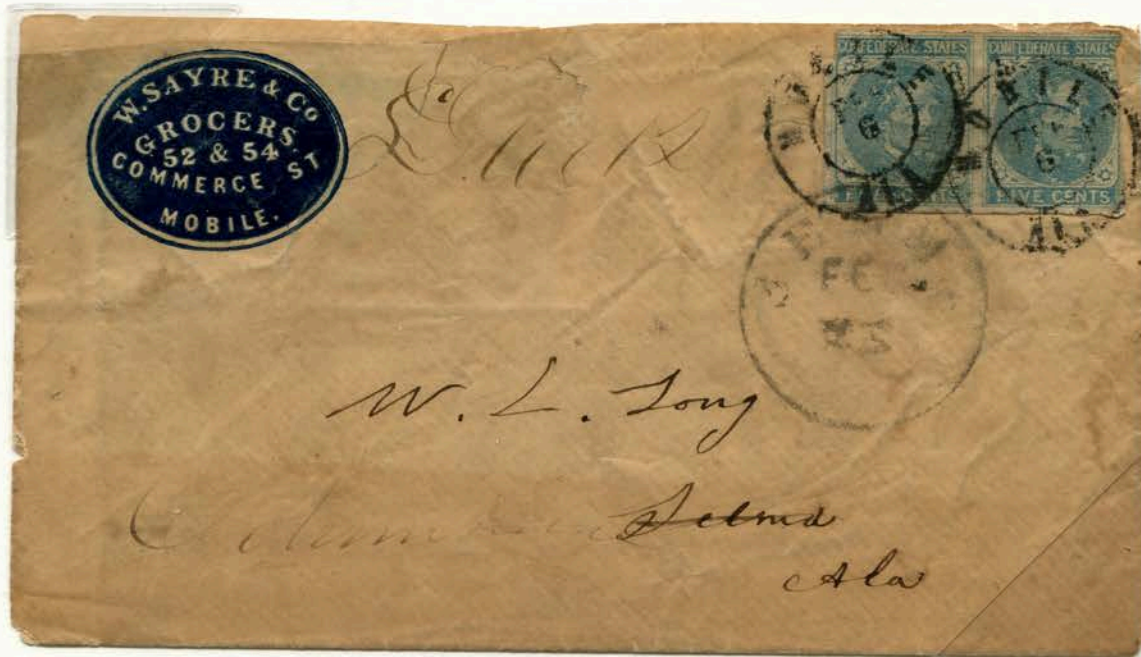 W. SAYRE & Co
GROCERS.
52 & 54
COMMERCE ST
MOBILE.
CONFEDERATE STATES
FIVE CENTS
CONFEDERATE STATES
FIVE CENTS
MOBILE
6
ALA
MOBILE
6
ALA
W. L. Long
Selma
Ala